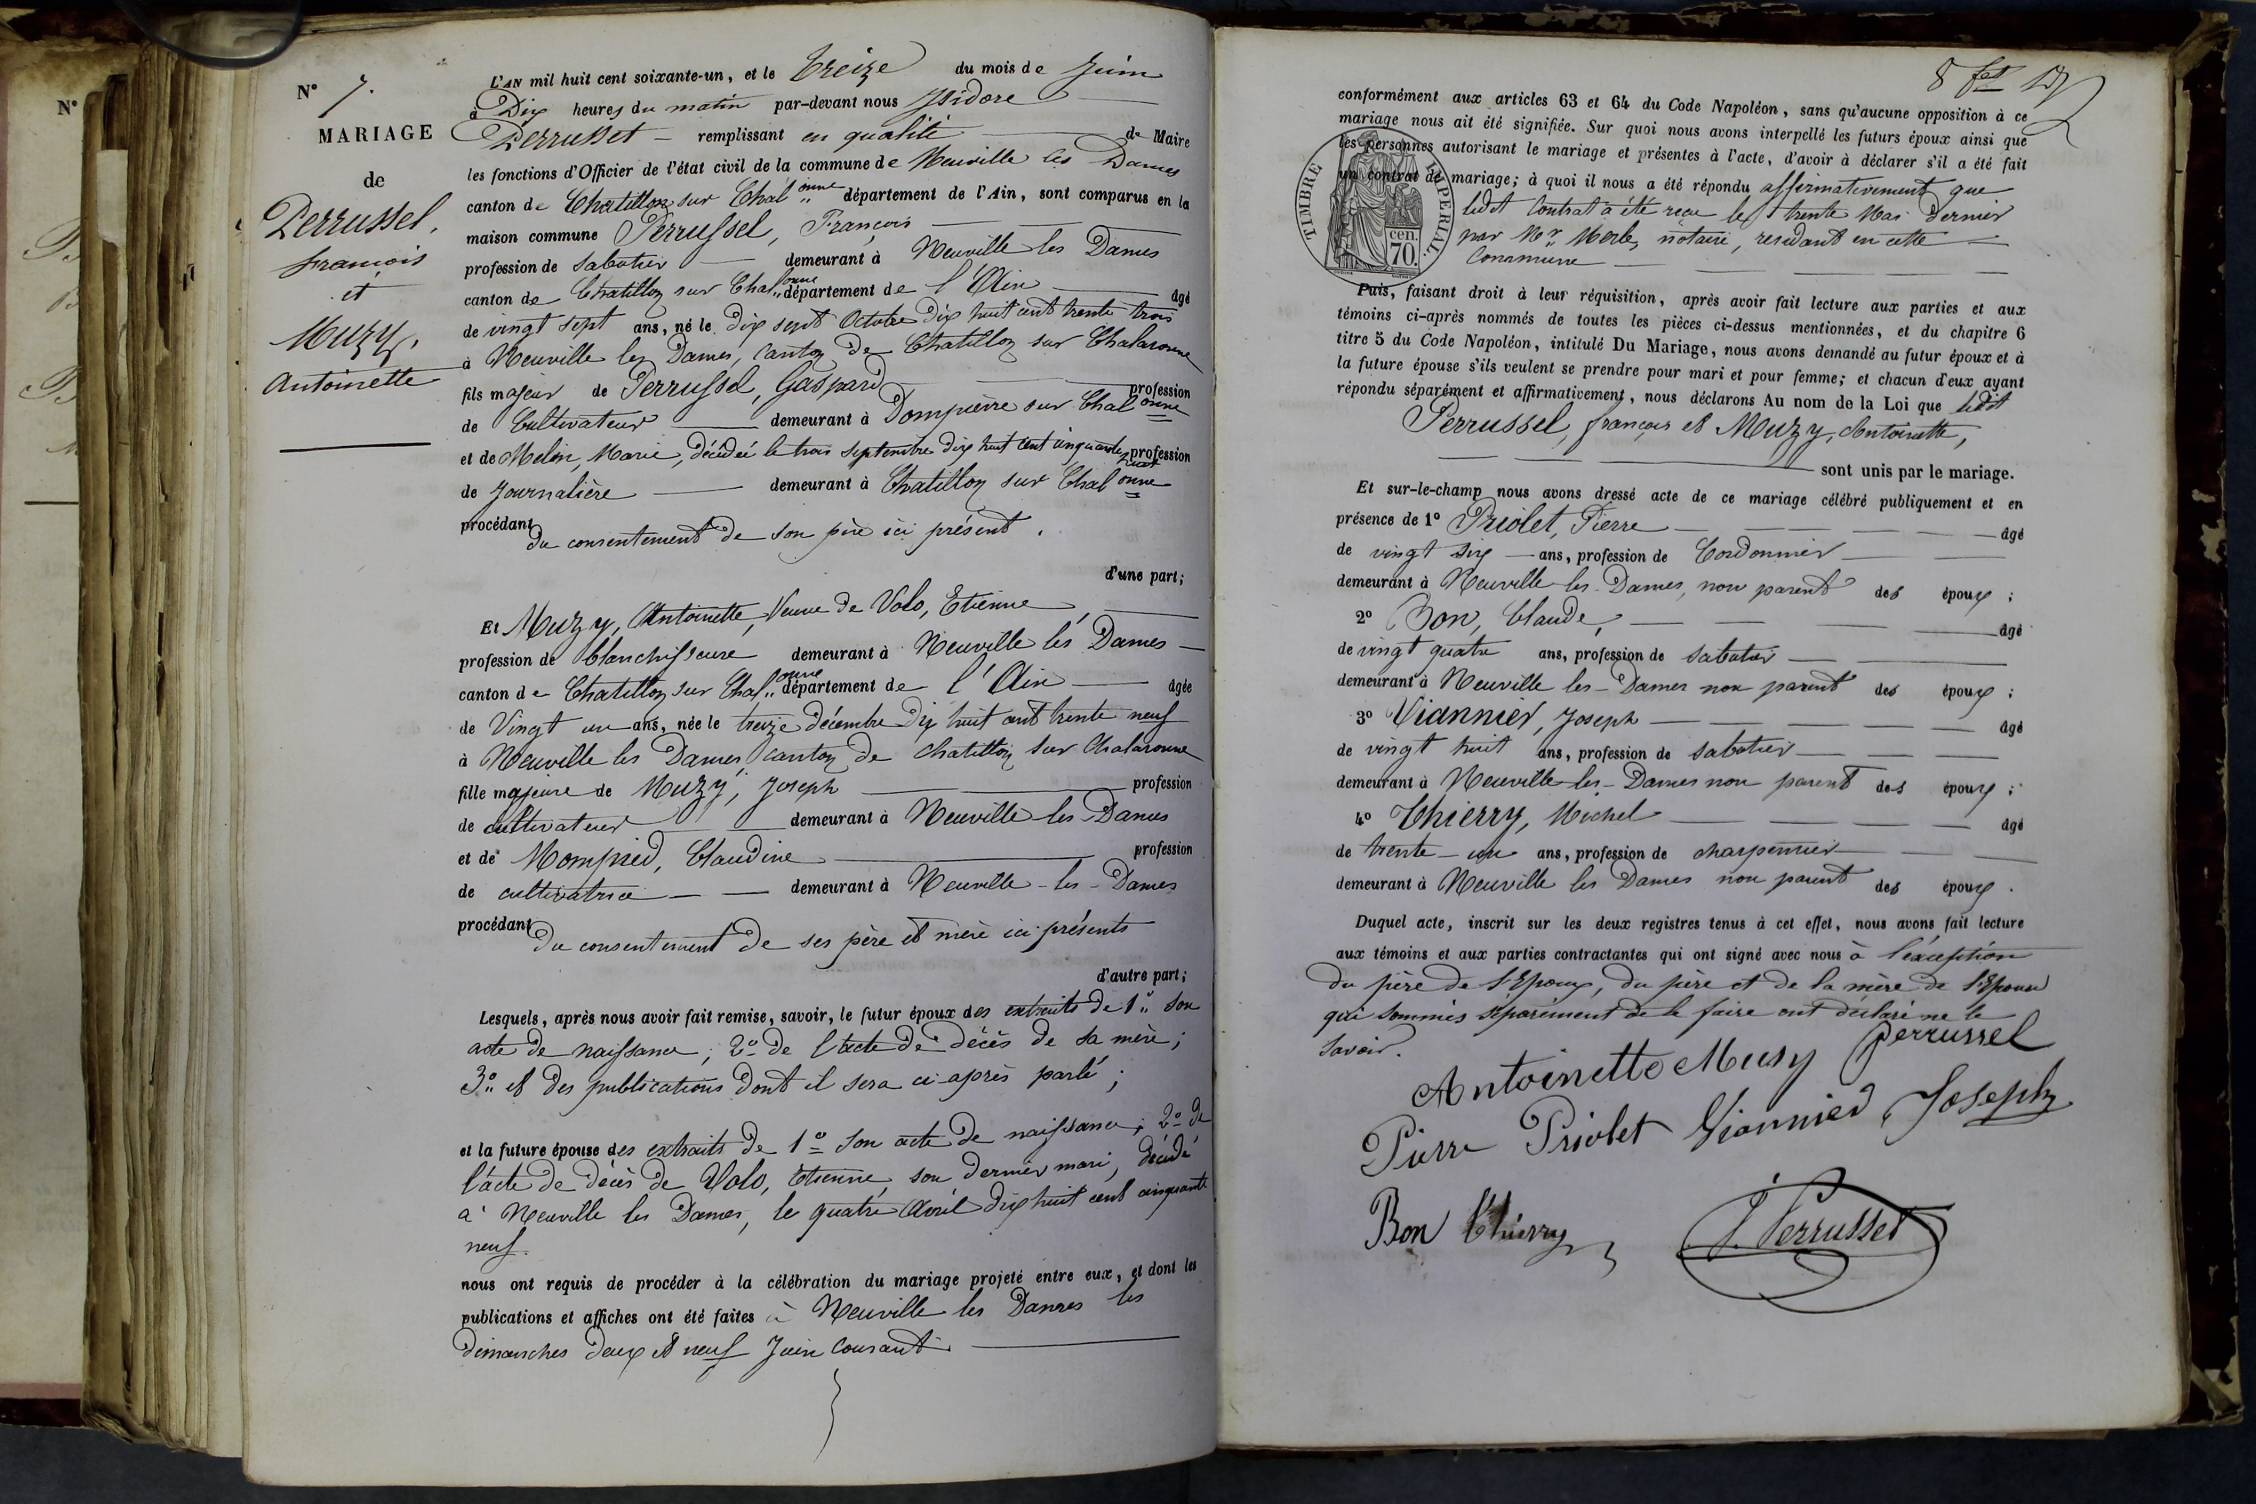 N° 7.
MARIAGE
de
Perrussel,
francois
et
Muzy,
Antoinette
L'AN mil huit cent soixante-un, et le treize du mois de Juin
à Dix heures du matin par-devant nous Isidore
Perrusset remplissant en qualité de Maire
les fonctions d'Officier de l'état civil de la commune de Neuville les Dames
canton de Chatillon sur Chal.onne département de l'Ain, sont comparus en la
maison commune Perrussel, François
profession de sabotier demeurant à Neuville les Dames
canton de Chatillon sur Chal.onne département de l'Ain âgé
de vingt sept ans, né le dix sept Octobre dix huit cent trente trois
à Neuville les Dames, canton de Chatillon sur Chalaronne
fils majeur de Perrussel, Gaspard profession
de Cultivateur demeurant à Dompierre sur Chalonne
et de Melin, Marie, décédée le trois septembre dix huit cent cinquante huit profession
de Journalière demeurant à Chatillon sur Chalonne
procédant du consentement de son père ici présent.
d'une part;
Et Muzy, Antoinette, Veuve de Volo, Etienne,
profession de blanchisseuse demeurant à Neuville les Dames
canton de Chatillon sur Chal.onne département de l'Ain âgée
de Vingt un ans, née le treize décembre dix huit cent trente neuf
à Neuville les Dames, canton de chatillon sur Chalaronne
fille majeure de Muzy, Joseph profession
de cultivateur demeurant à Neuville les Dames
et de Mompied, Claudine profession
de cultivatrice demeurant à Neuville-les-Dames
procédant du consentement de ses père et mère ici présents
d'autre part;
Lesquels, après nous avoir fait remise, savoir, le futur époux des extraits de 1° son
acte de naissance; 2° de l'acte de décès de sa mère;
3° et des publications dont il sera ci-après parlé;
et la future épouse des extraits de 1° son acte de naissance; 2° de
l'acte de décès de Volo, Etienne, son dernier mari, décédé
à Neuville les Dames, le quatre Avril dix huit cent cinquante
neuf.
nous ont requis de procéder à la célébration du mariage projeté entre eux, et dont les
publications et affiches ont été faites à Neuville les Dames les
dimanches deux et neuf Juin courant.
conformément aux articles 63 et 64 du Code Napoléon, sans qu'aucune opposition à ce
mariage nous ait été signifiée. Sur quoi nous avons interpellé les futurs époux ainsi que
les personnes autorisant le mariage et présentes à l'acte, d'avoir à déclarer s'il a été fait
un contrat de mariage; à quoi il nous a été répondu affirmativement que
ledit Contrat a été reçu le trente Mai dernier
par Mr. Merle, notaire, residant en cette
Commune
TIMBRE IMPERIAL
cen.
70.
Puis, faisant droit à leur réquisition, après avoir fait lecture aux parties et aux
témoins ci-après nommés de toutes les pièces ci-dessus mentionnées, et du chapitre 6
titre 5 du Code Napoléon, intitulé Du Mariage, nous avons demandé au futur époux et à
la future épouse s'ils veulent se prendre pour mari et pour femme; et chacun d'eux ayant
répondu séparément et affirmativement, nous déclarons Au nom de la Loi que ledit
Perrussel, françois et Muzy, Antoinette,
sont unis par le mariage.
Et sur-le-champ nous avons dressé acte de ce mariage célébré publiquement et en
présence de 1° Priolet, Pierre âgé
de vingt six ans, profession de Cordonnier
demeurant à Neuville les Dames, non parent des époux;
2° Bon, Claude, âgé
de vingt quatre ans, profession de sabotier
demeurant à Neuville les-Dames non parent des époux;
3° Viannier, Joseph âgé
de vingt huit ans, profession de sabotier
demeurant à Neuville-les-Dames non parent des époux;
4° Thierry, Michel âgé
de trente-un ans, profession de charpentier
demeurant à Neuville les Dames non parent des époux.
Duquel acte, inscrit sur les deux registres tenus à cet effet, nous avons fait lecture
aux témoins et aux parties contractantes qui ont signé avec nous à l'exception
du père de l'Epoux, du père et de la mère de l'Epouse
qui sommés séparément de le faire ont déclaré ne le
savoir.
Antoinette Musy Perrussel
Pierre Priolet Viannier Joseph
Bon Thierry I. Perrusset